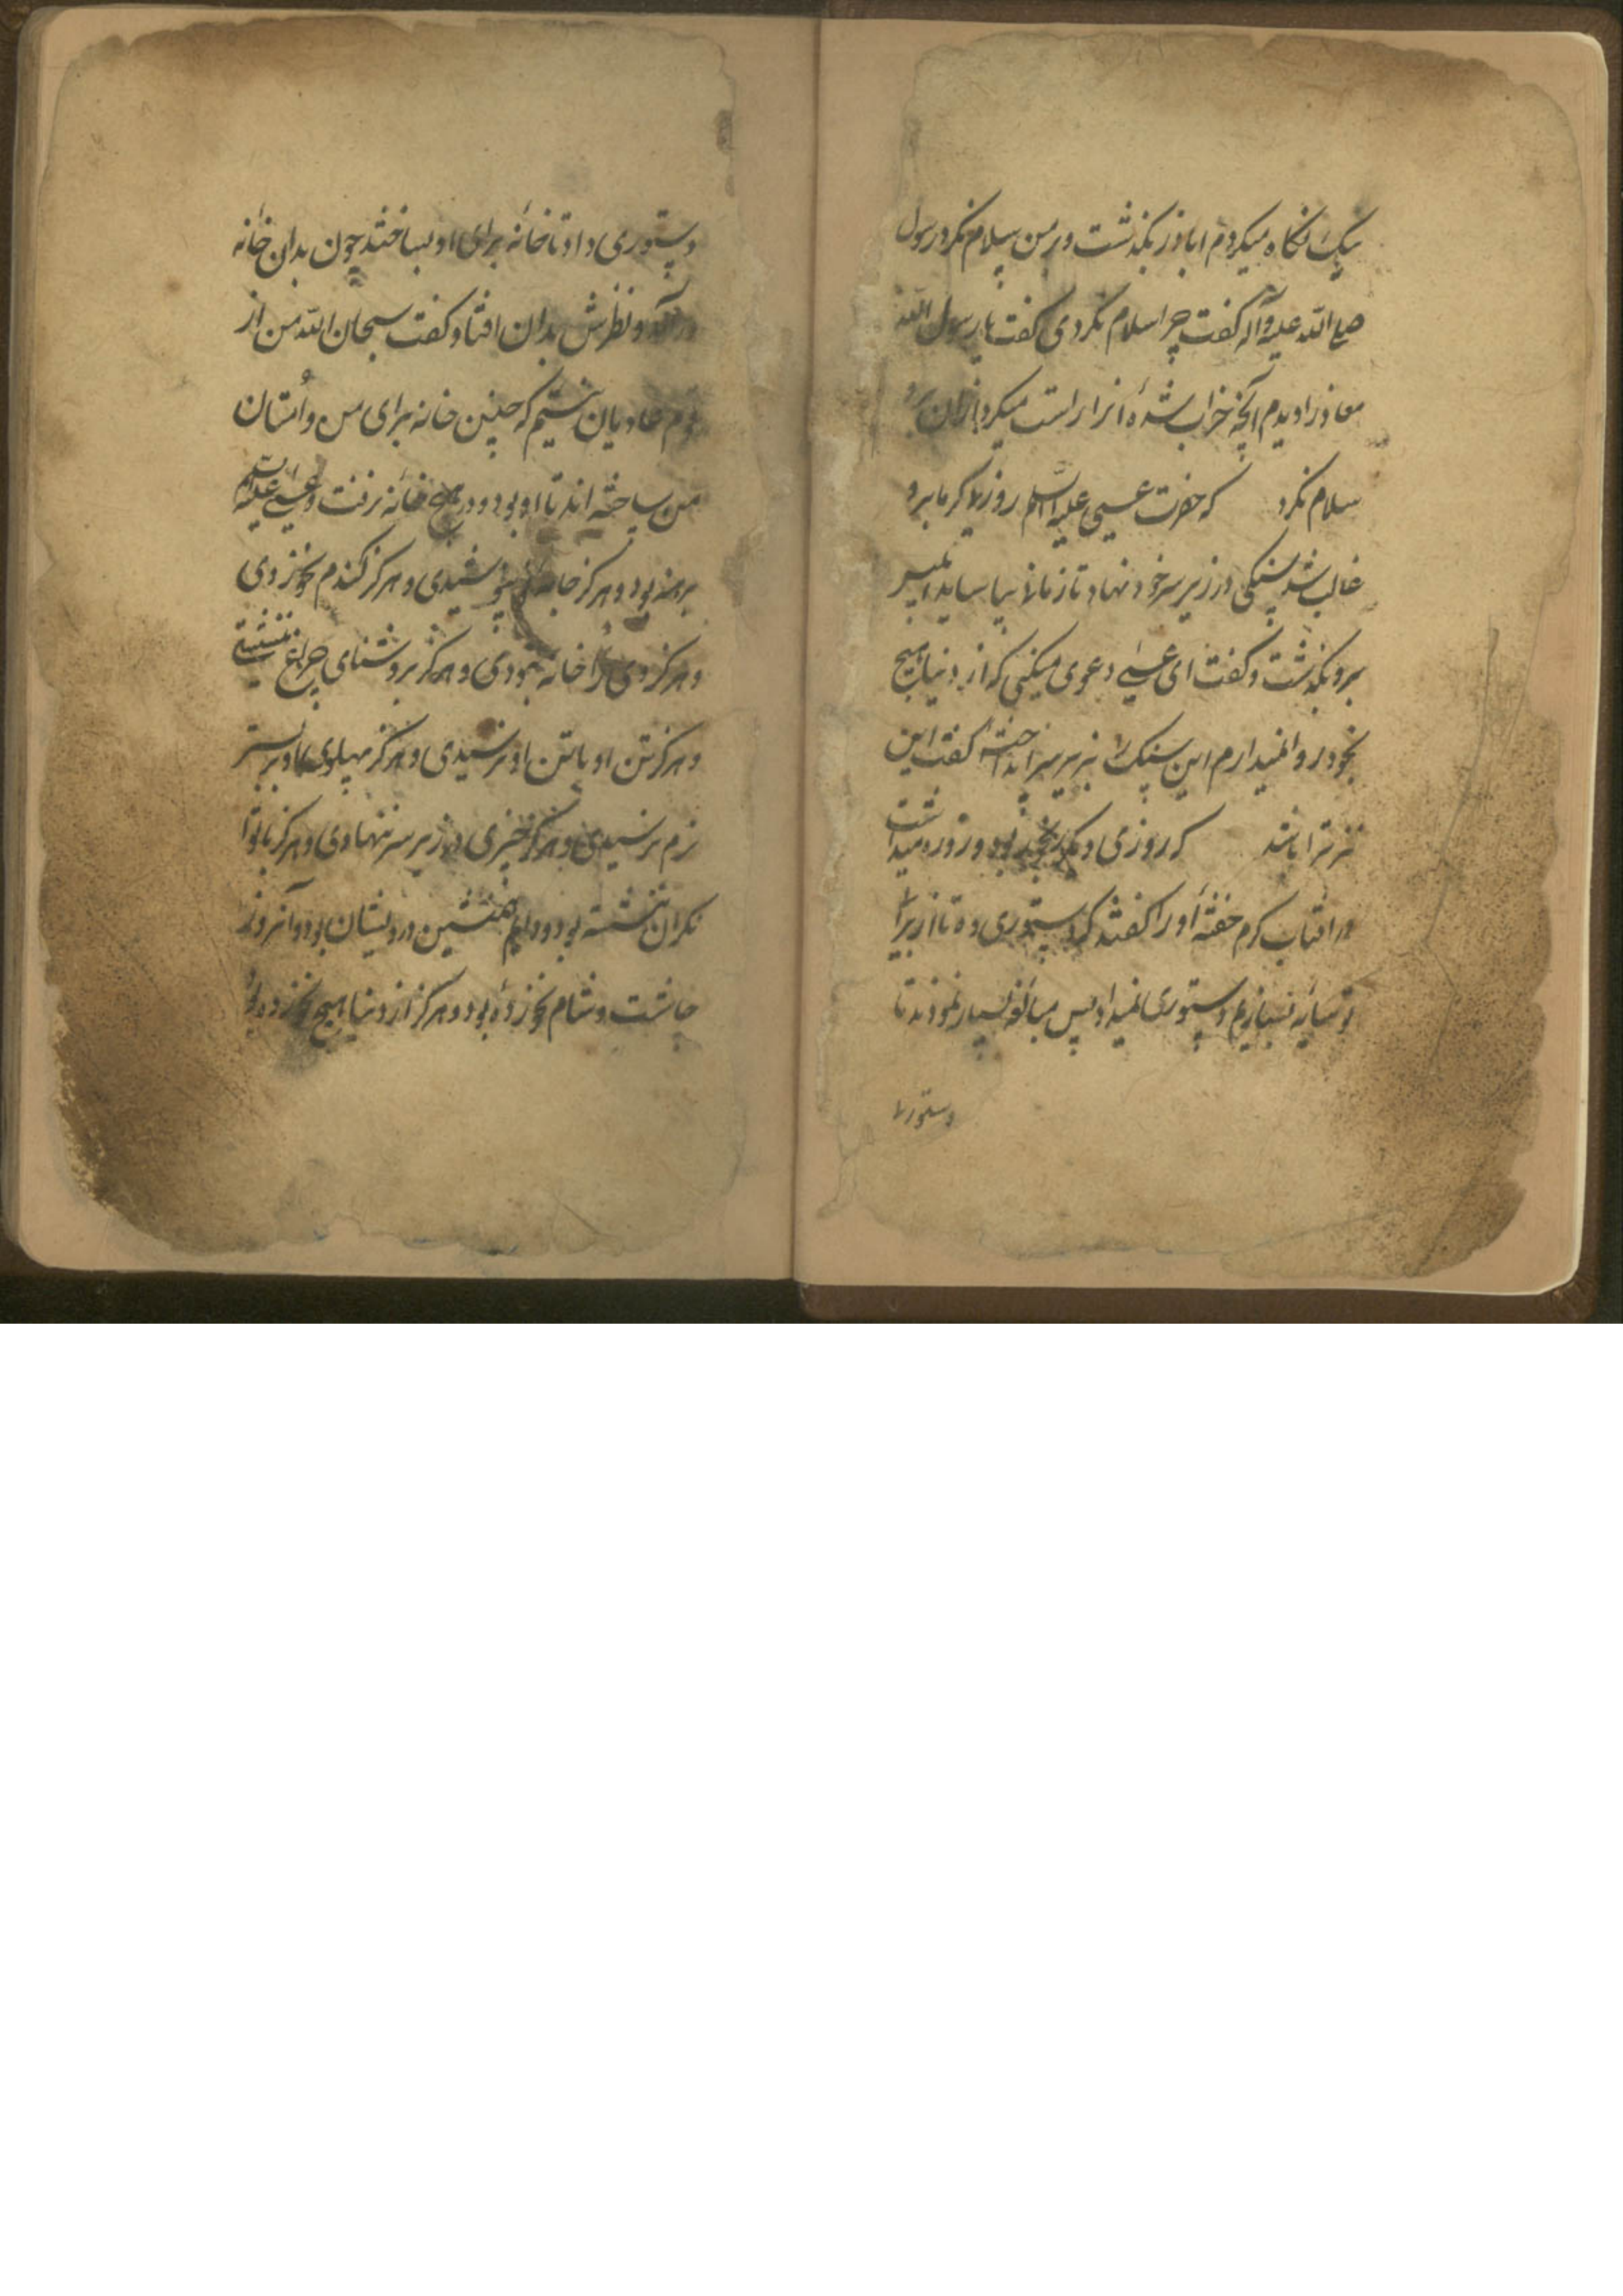 یک نگاه میکردم اباذر بگذشت و بر من سلام نکرد رسول
صلی الله علیه وآله گفت چرا سلام نکردی گفت یا رسول الله
معاذ را دیدم آنچه خراب شده آنرا راست میکرد ازان برو
سلام نکرد که حضرت عیسی علیه السلام روزی گرما برو
غالب شد سنگی در زیر سر خود نهاد تا زمانی بیاساید ابلیس
برو بگذشت و گفت ای عیسی دعوی میکنی که از دنیا هیچ
بخود روا نمیدارم این سنگ بزیر سر انداخته گفت این
نیز ترا باشد که روزی دیگر رنجور بود و روزه میداشت
در افتاب گرم خفته او را گفتند که دستوری ده تا از برای
تو سایه بسازیم دستوری نمیداد پس مبالغه بسیار نمودند تا
دستوری
دستوری داد تا خانه برای او بساختند چون بدان خانه
در آمد و نظرش بدان افتاد گفت سبحان الله من از
قوم عادیان نیستیم که چنین خانه برای من و امتان
من ساخته اند تا او بود در هیچ خانه نرفت و عیسی علیه السلام
برهنه بود و هرگز جامه نپوشیدی و هرگز گندم نخوردی
و هرگز وی را خانه نبودی و هرگز بروشنای چراغ ننشستی
و هرگز تن او با تن او نرسیدی و هرگز پهلوی او بر بستر
نرم نرسیدی و هرگز چیزی در زیر سر ننهادی و هرگز با توا
نگران ننشسته بود و دایم همنشین درویشان بود و آنروز
چاشت و شام نخورده بود و هرگز از دنیا هیچ نخورده بود